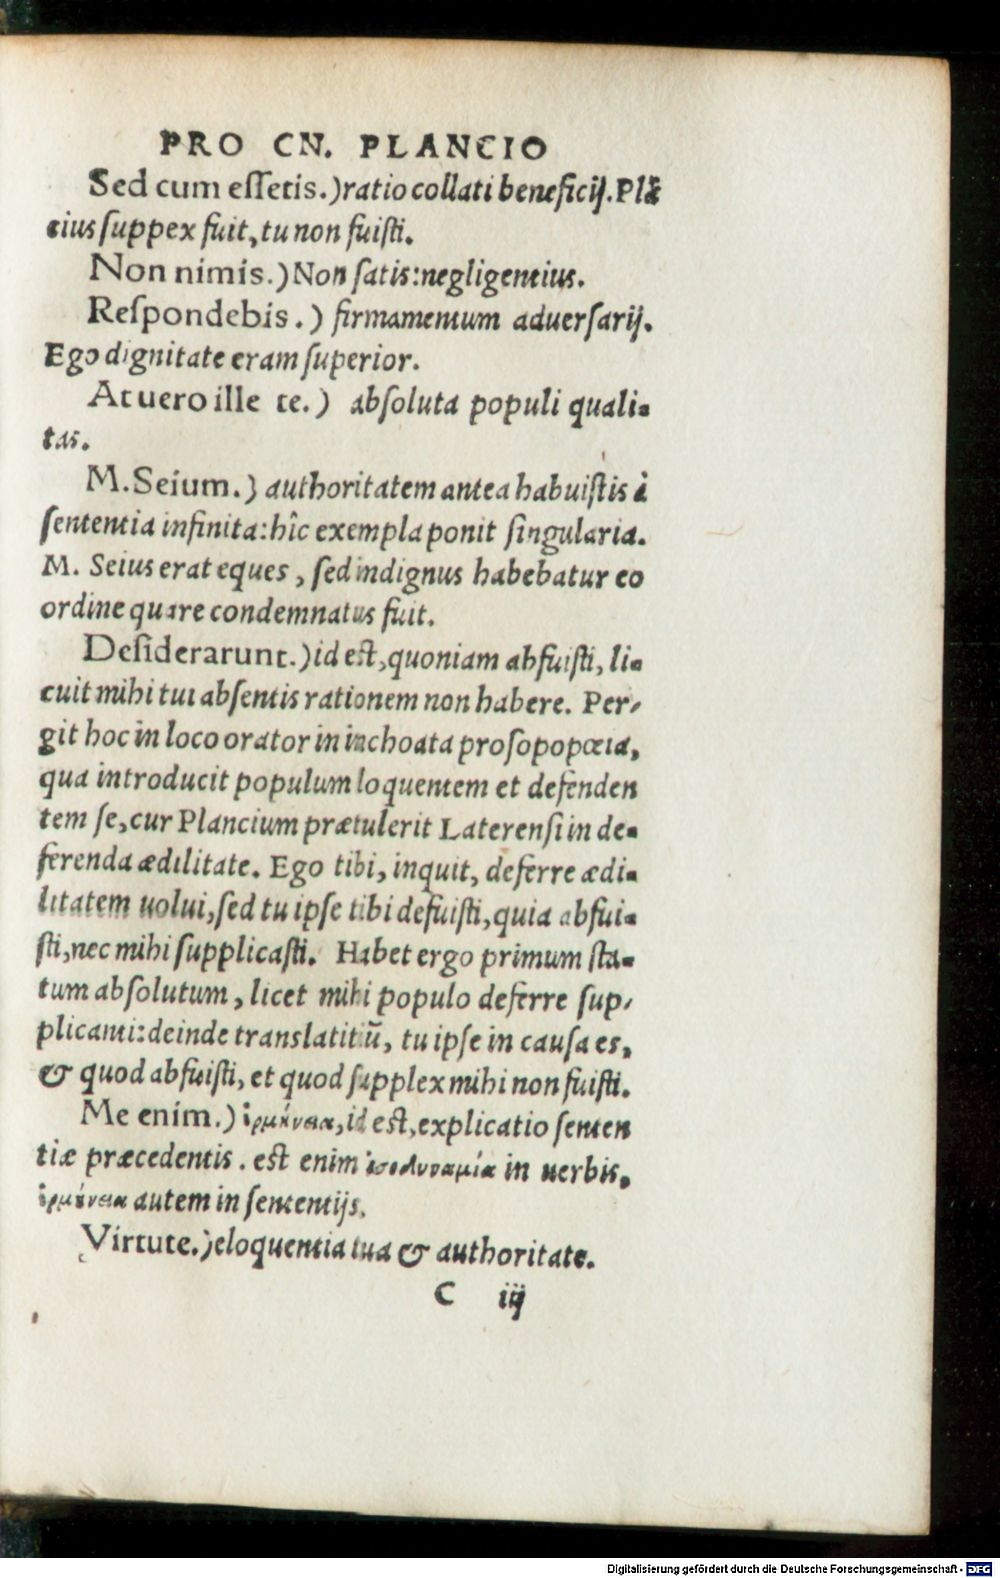 PRO CN. PLANCIO
Sed cum eſſetis.) ratio collati beneficij. Plã
cius ſuppex fuit, tu non fuiſti.
Non nimis.) Non ſatis: negligentius.
Reſpondebis.) firmamentum aduerſarij.
Ego dignitate eram ſuperior.
At uero ille te.) abſoluta populi quali-
tas.
M. Seium.) authoritatem antea habuiſtis à
ſententia infinita: hîc exempla ponit ſingularia.
M. Seius erat eques, ſed indignus habebatur eo
ordine quare condemnatus fuit.
Deſiderarunt.) id eſt, quoniam abfuiſti, li-
cuit mihi tui abſentis rationem non habere. Per-
git hoc in loco orator in inchoata proſopopœia,
qua introducit populum loquentem et defenden
tem ſe, cur Plancium prætulerit Laterenſi in de-
ferenda ædilitate. Ego tibi, inquit, deferre ædi-
litatem uolui, ſed tu ipſe tibi defuiſti, quia abfui-
ſti, nec mihi ſupplicaſti. Habet ergo primum ſta-
tum abſolutum, licet mihi populo deferre ſup-
plicanti: deinde translatitiũ, tu ipſe in cauſa es,
& quod abfuiſti, et quod ſupplex mihi non fuiſti.
Me enim.) ἑρμήνεια, id eſt, explicatio ſenten
tiæ præcedentis. eſt enim ἰσοδυναμία in uerbis,
ἑρμήνεια autem in ſententijs.
Virtute.) eloquentia tua & authoritate.
C iij
Digitalisierung gefördert durch die Deutsche Forschungsgemeinschaft - DFG